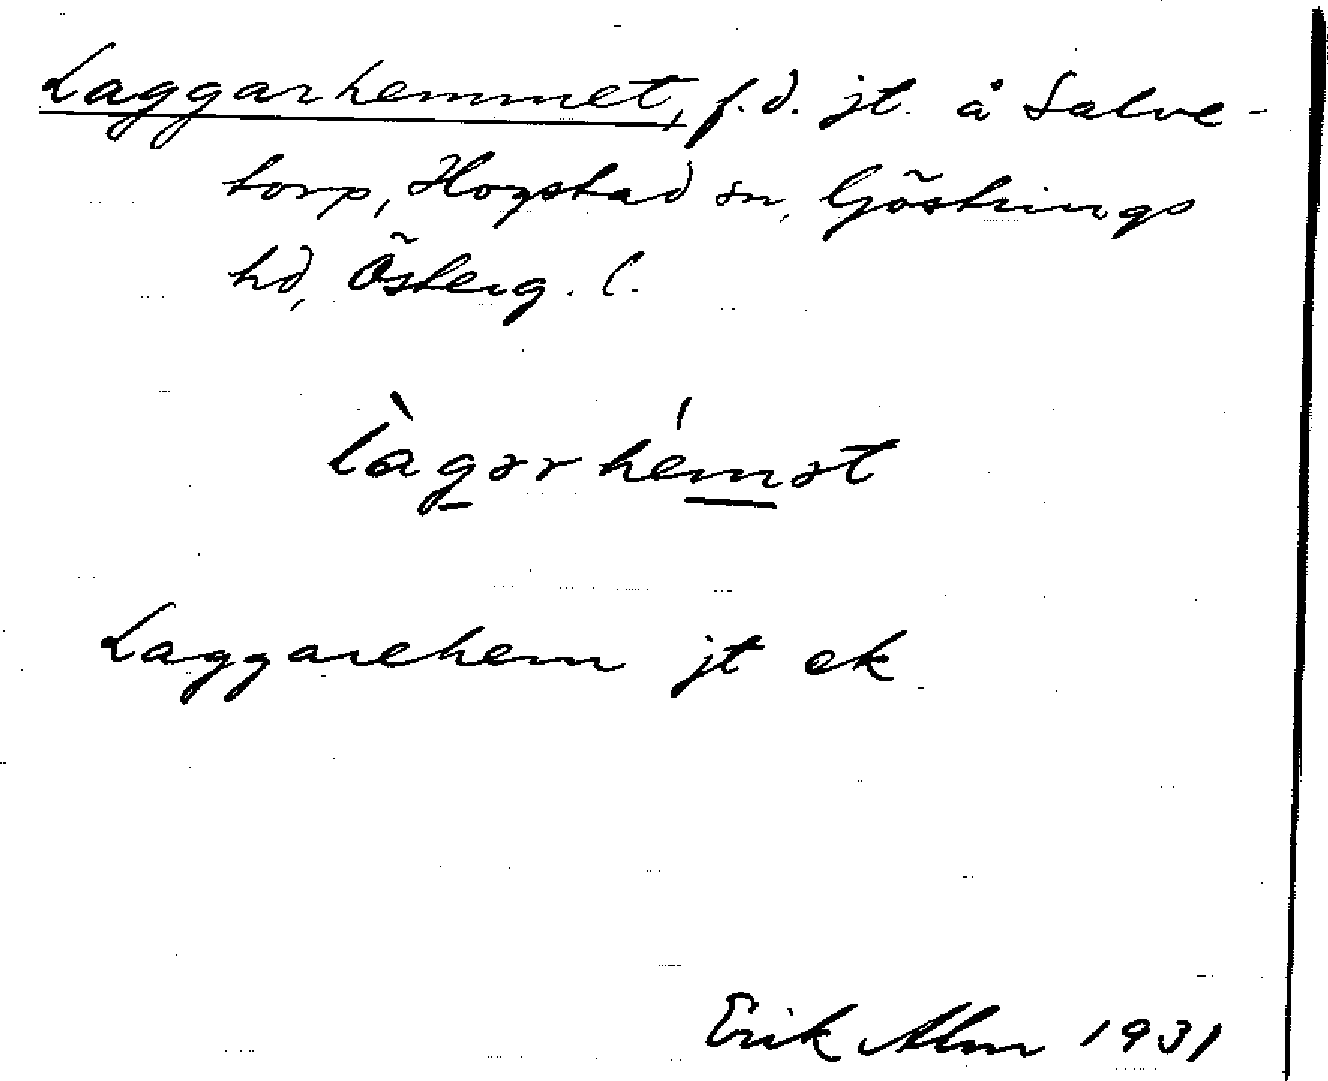 Laggarhemmet, f.d. jt. å Salve-
torp, Hogstad sn, Göstrings
hd, Österg. l.
làgərhémət
Laggarehem jt ek
Erik Alm 1931